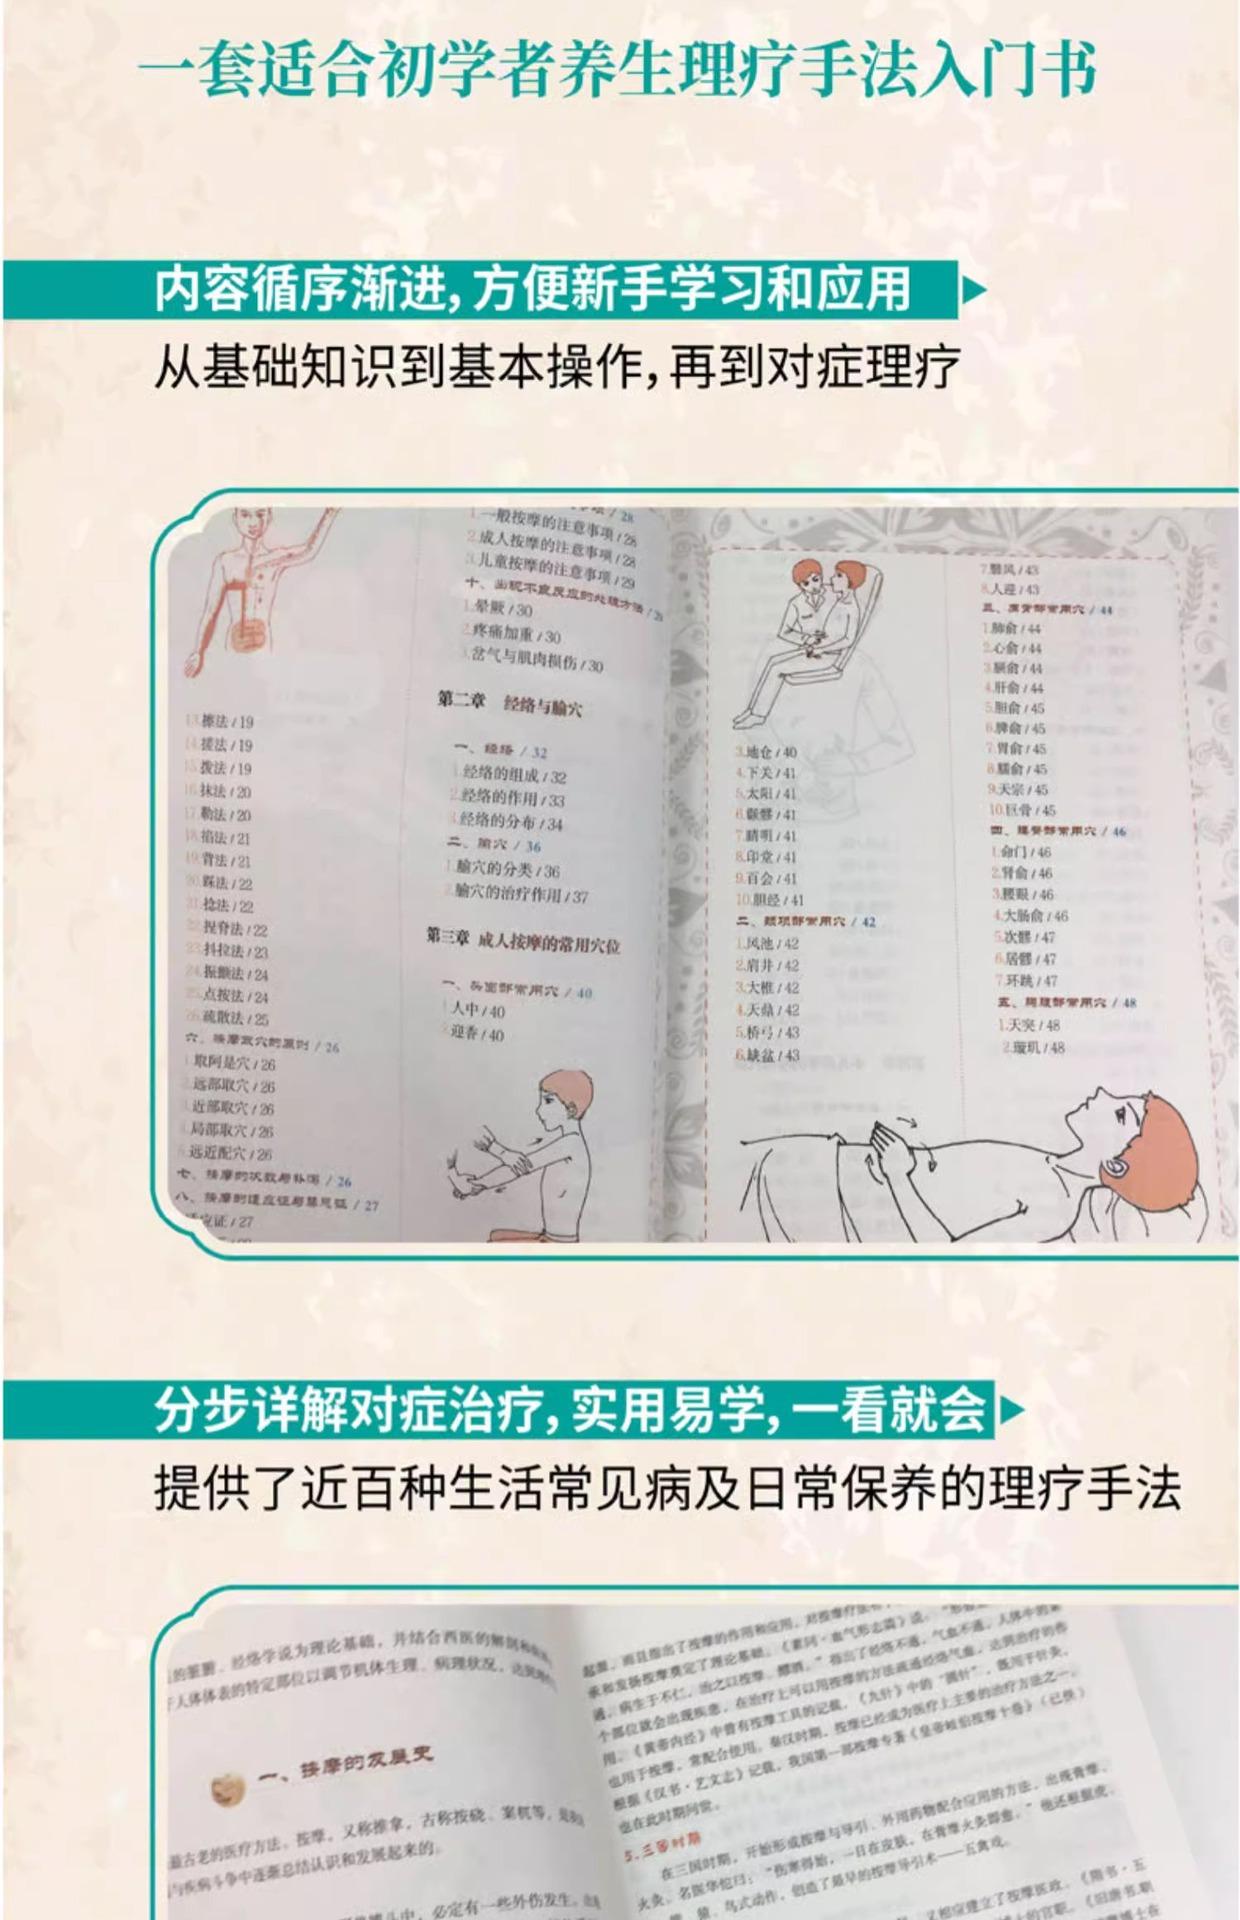 一套适合初学者养生理疗手法入门书
内容循序渐进,方便新手学习和应用
从基础知识到基本操作,再到对症理疗
13.擦法/19
14.搓法/19
15.拨法/19
16.抹法/20
17.勒法/20
18.掐法/21
19.背法/21
20.踩法/22
21.捻法/22
22.捏脊法/22
23.抖拉法/23
24.振颤法/24
25.点按法/24
26.疏散法/25
六、按摩取穴的原则/26
1.取阿是穴/26
2.远部取穴/26
3.近部取穴/26
4.局部取穴/26
5.远近配穴/26
七、按摩的次数与补泻/26
八、按摩的适应证与禁忌证/27
适应证/27
1.一般按摩的注意事项/28
2.成人按摩的注意事项/28
3.儿童按摩的注意事项/29
十、出现不良反应的处理方法
1.晕厥/30
2.疼痛加重/30
3.岔气与肌肉损伤/30
第二章 经络与腧穴
一、经络/32
1.经络的组成/32
2.经络的作用/33
3.经络的分布/34
二、腧穴/36
1.腧穴的分类/36
2.腧穴的治疗作用/37
第三章 成人按摩的常用穴位
一、头面部常用穴/40
1.人中/40
2.迎香/40
3.地仓/40
4.下关/41
5.太阳/41
6.颧髎/41
7.睛明/41
8.印堂/41
9.百会/41
10.胆经/41
二、颈项部常用穴/42
1.风池/42
2.肩井/42
3.大椎/42
4.天鼎/42
5.桥弓/43
6.缺盆/43
7.翳风/43
8.人迎/43
三、肩背部常用穴/44
1.肺俞/44
2.心俞/44
3.膈俞/44
4.肝俞/44
5.胆俞/45
6.脾俞/45
7.胃俞/45
8.臑俞/45
9.天宗/45
10.巨骨/45
四、腰臀部常用穴/46
1.命门/46
2.肾俞/46
3.腰眼/46
4.大肠俞/46
5.次髎/47
6.居髎/47
7.环跳/47
五、胸腹部常用穴/48
1.天突/48
2.璇玑/48
分步详解对症治疗,实用易学,一看就会
提供了近百种生活常见病及日常保养的理疗手法
的脏腑、经络学说为理论基础,并结合西医的解剖和
人体体表的特定部位以调节机体生理、病理状况,达到
一、按摩的发展史
最古老的医疗方法。按摩,又称推拿,古称按硗、案杌等,是
与疾病斗争中逐渐总结认识和发展起来的。
中,必定有一些外伤发生。
起源,而且指出了按摩的作用和应用,对按摩疗法
承和发扬按摩奠定了理论基础。《素问·血气形志篇》说:
通,病生于不仁,治之以按摩、醪酒。”指出了经络不通,气血不通,人体中的某
个部位就会出现疾患,在治疗上可以用按摩的方法疏通经络气血,达到治疗的作
用。《黄帝内经》中曾有按摩工具的记载,《九针》中的“圆针”,既用于针灸,
也用于按摩,常配合使用。秦汉时期,按摩已经成为医疗上主要的治疗方法之一。
根据《汉书·艺文志》记载,我国第一部按摩专著《皇帝岐伯按摩十卷》(已佚)
也在此时期问世。
5.三国时期
在三国时期,开始形成按摩与导引、外用药物配合应用的方法,出现膏摩、
火灸。名医华佗曰:“伤寒得始,一日在皮肤,在膏摩火灸即愈。”他还根据虎、
猿、鸟式动作,创造了最早的按摩导引术——五禽戏。
又相应建立了按摩医政。《隋书·五